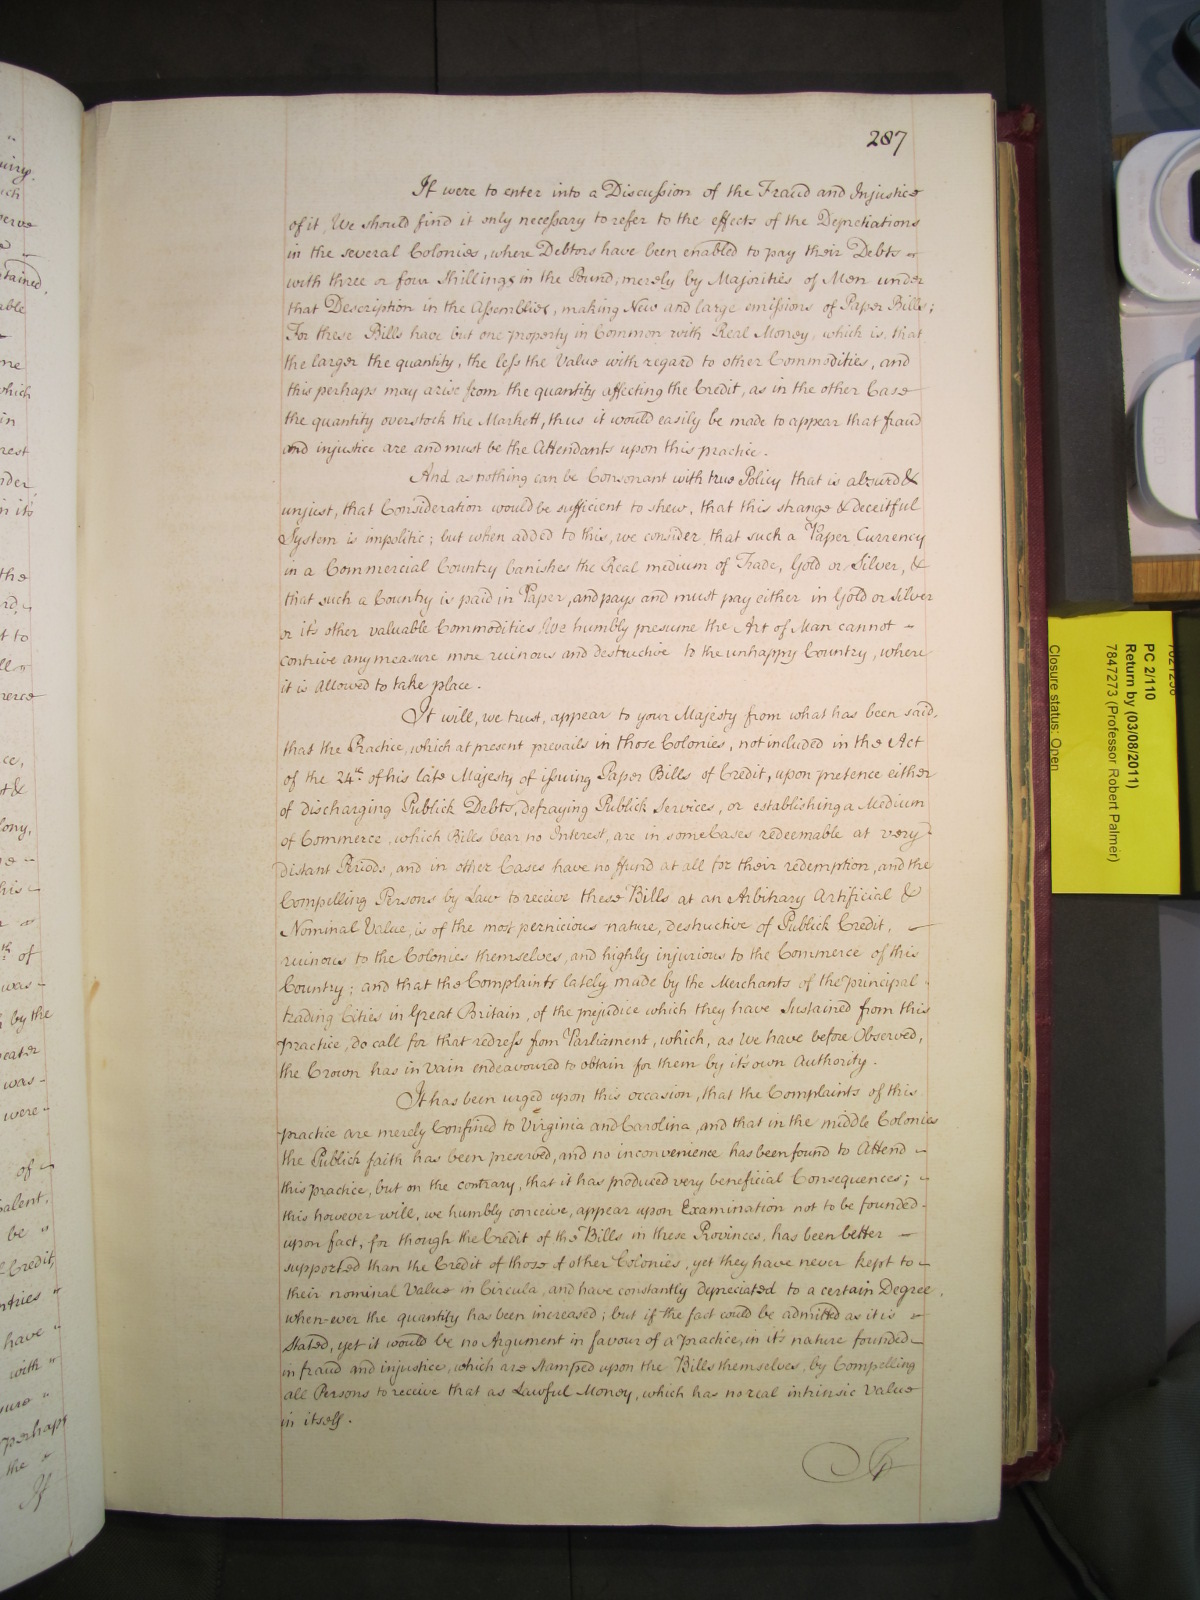 287
If were to enter into a Discussion of the Fraud and Injustice
of it, We should find it only necessary to refer to the effects of the Depretiations
in the several Colonies, where Debtors have been enabled to pay their Debts
with three or four Shillings in the Pound, merely by Majorities of Men under
that Description in the Assemblies, making New and large emissions of Paper Bills;
For these Bills have but one property in Common with Real Money, which is, that
the larger the quantity, the less the Value with regard to other Commodities, and
this perhaps may arise from the quantity affecting the Credit, as in the other Case
the quantity overstock the Markett, thus it would easily be made to appear that fraud
and injustice are and must be the Attendants upon this practice.
And as nothing can be Consonant with true Policy that is absurd &
unjust, that Consideration would be sufficient to shew, that this strange & deceitful
System is impolitic; but when added to this, we consider, that such a Paper Currency
in a Commercial Country banishes the Real medium of Trade, Gold or Silver, &
that such a Country is paid in Paper, and pays and must pay either in Gold or Silver
or it's other valuable Commodities, We humbly presume the Art of Man cannot
contrive any measure more ruinous and destructive to the unhappy Country, where
it is allowed to take place.
It will, we trust, appear to your Majesty from what has been said,
that the Practice, which at present prevails in those Colonies, not included in the Act
of the 24th. of his late Majesty of issuing Paper Bills of Credit, upon pretence either
of discharging Publick Debts, defraying Publick Services, or establishing a Medium
of Commerce, which Bills bear no Interest, are in some Cases redeemable at very
distant Periods, and in other Cases have no ffund at all for their redemption, and the
Compelling Persons by Law to receive these Bills at an Arbitrary Artificial &
Nominal Value, is of the most pernicious nature, destructive of Publick Credit,
ruinous to the Colonies themselves, and highly injurious to the Commerce of this
Country; and that the Complaints lately made by the Merchants of the principal
trading Cities in Great Britain, of the prejudice which they have Sustained from this
practice, do call for that redress from Parliament, which, as We have before Observed,
the Crown has in vain endeavoured to obtain for them by it's own Authority.
It has been urged upon this occasion, that the Complaints of this
practice are merely Confined to Virginia and Carolina, and that in the middle Colonies
the Publick faith has been preserved, and no inconvenience has been found to Attend
this practice, but on the contrary, that it has produced very beneficial Consequences;
this however will, we humbly conceive, appear upon Examination not to be founded
upon fact, for though the Credit of the Bills in these Provinces, has been better
supported than the Credit of those of other Colonies, yet they have never kept to
their nominal Value in Circula, and have constantly depreciated to a certain Degree
when-ever the quantity has been increased; but if the fact could be admitted as it is
Stated, yet it would be no Argument in favour of a practice, in it's nature founded
in fraud and injustice, which are Stamped upon the Bills themselves, by Compelling
all Persons to receive that as Lawful Money, which has no real intrinsic Value
in itself.
PC 2/110
Return by (03/08/2011)
7847273 (Professor Robert Palmer)
Closure status: Open